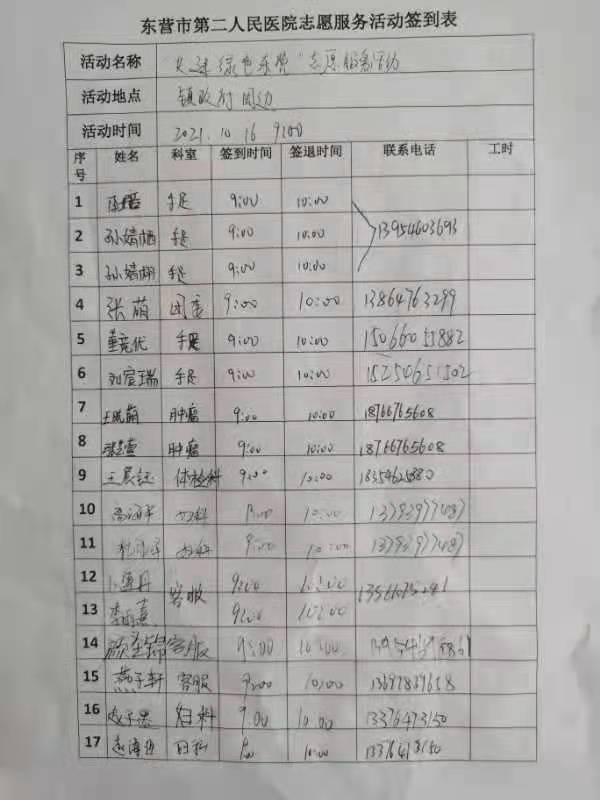 东营市第二人民医院志愿服务活动签到表
活动名称 绿色东营"志愿服务活动
活动地点 镇政府周边
活动时间 2021.10.16 9:00
序号 姓名 科室 签到时间 签退时间 联系电话 工时
1 手足 9:00 10:00
2 孙婧栖 手足 9:00 10:00 13954603693
3 孙婧栩 手足 9:00 10:00
4 张萌 团委 9:00 10:00 13864763299
5 董竞优 手足 9:00 10:00 15066055882
6 刘宣瑞 手足 9:00 10:00 15250651502
7 肿瘤 9:00 10:00 18766765608
8 肿瘤 9:00 10:00 18766765608
9 王辰钰 体检科 9:00 10:00 18354625880
10 妇科 9:00 10:00 13793977487
11 妇科 9:00 10:00 13793977487
12 客服 9:00 10:00
13 9:00 10:00
14 颜圣锦 客服 9:00 10:00
15 燕子轩 客服 9:00 10:00 13697839658
16 妇科 9:00 10:00 13376473150
17 妇科 9:00 10:00 13376473150